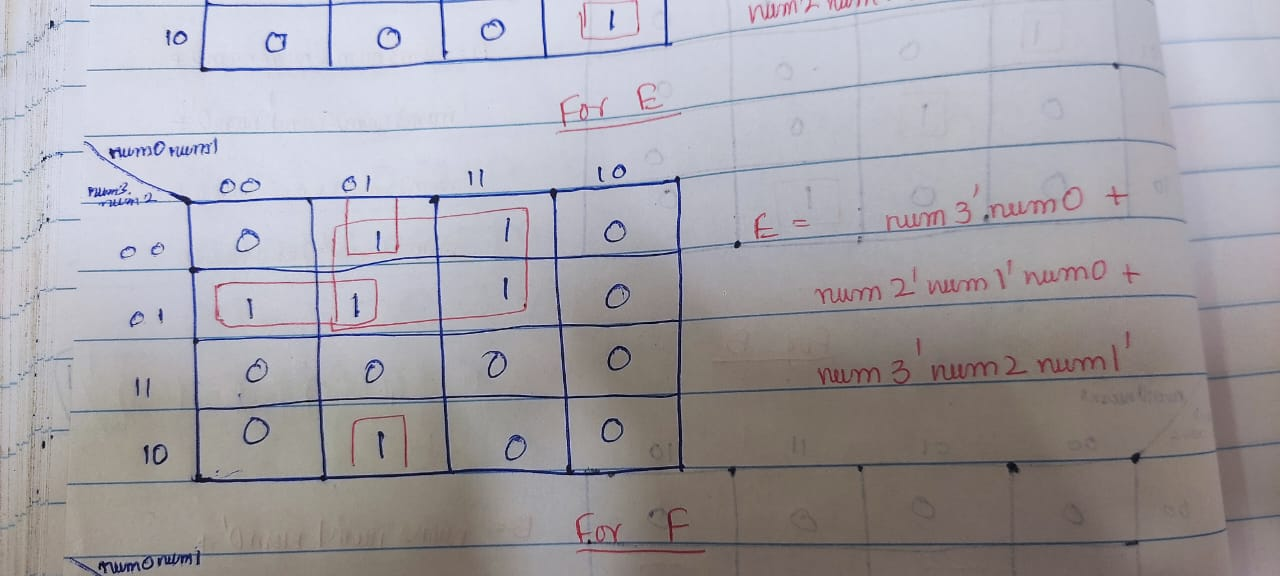 num2
10 0 0 0 1
For E
num0 num1
num3 num2
00 01 11 10
00 0 1 1 0
01 1 1 1 0
11 0 0 0 0
10 0 1 0 0
E = num3'.num0 +
num2'num1'num0 +
num3'num2 num1'
For F
num0num1